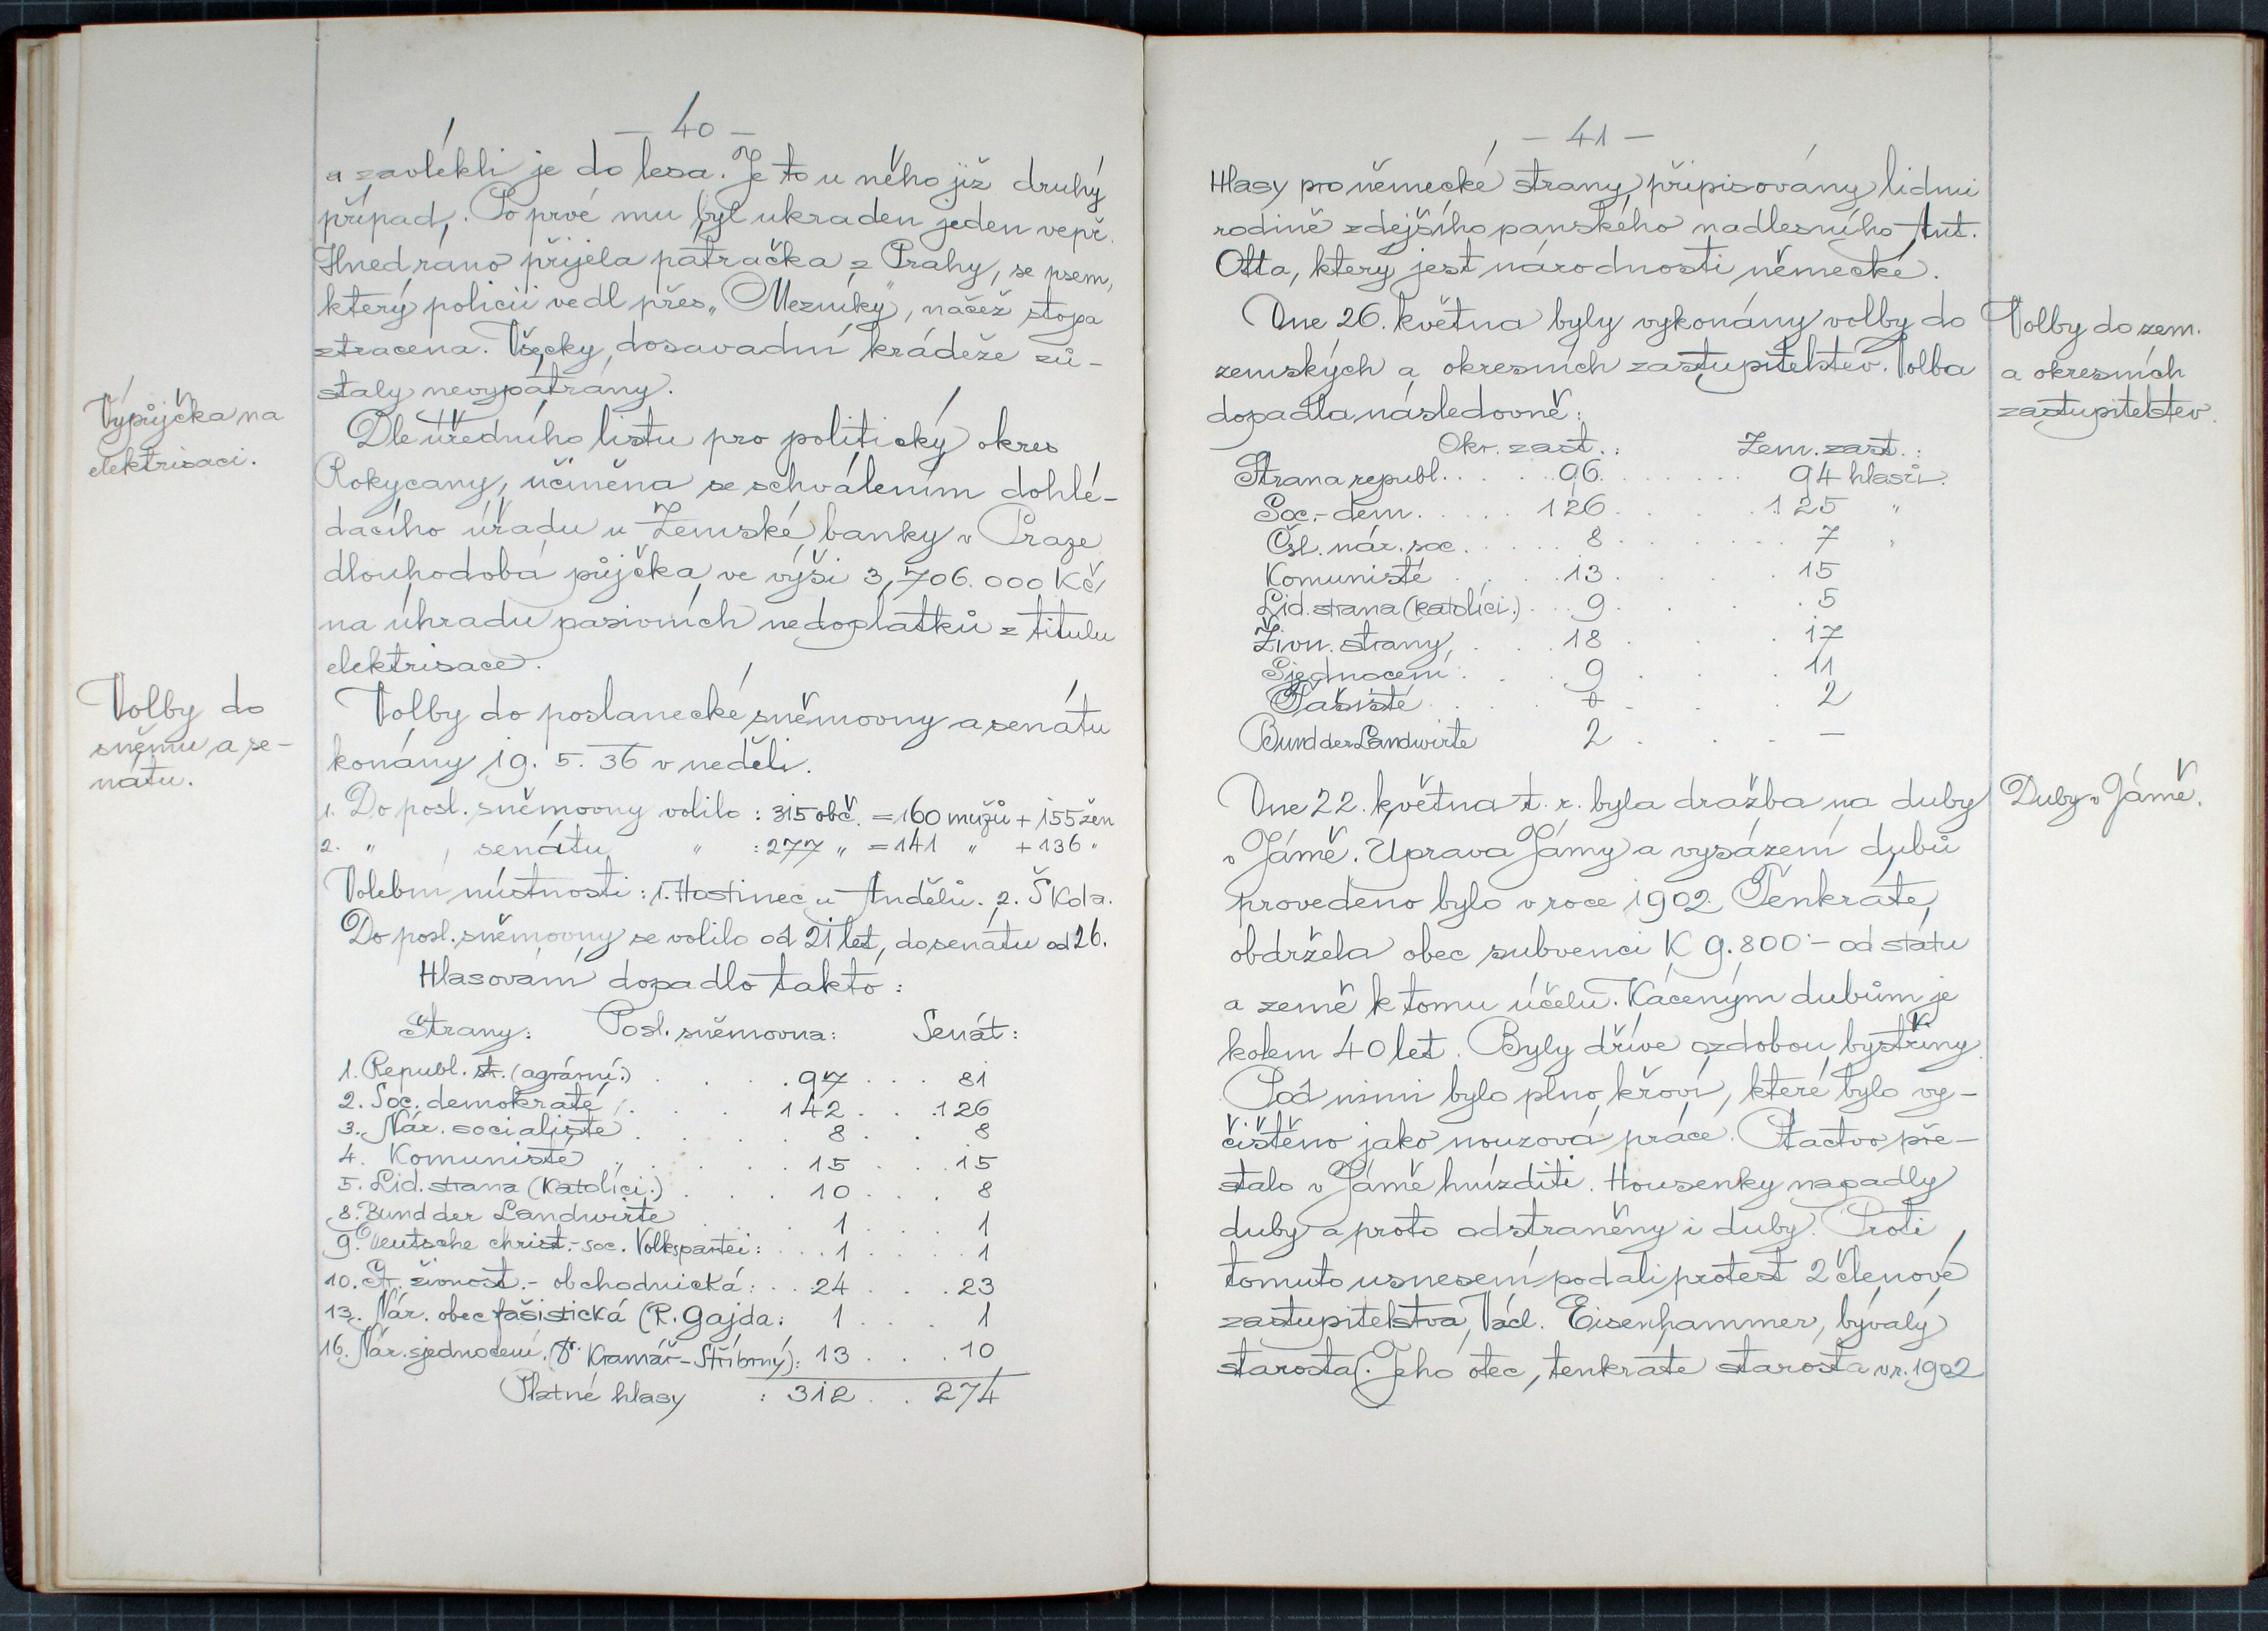 — 40 —
a zavlékli je do lesa. Je to u něho již druhý
případ. Po prvé mu byl ukraden jeden vepř.
Hned ráno přijela pátračka z Prahy, se psem,
který policii vedl přes „Mezníky", načež stopa
ztracena. Všecky dosavadní krádeže zů-
staly nevypátrány.
Výpůjčka na
elektrisaci.
Dle úředního listu pro politický okres
Rokycany, učiněna se schválením dohlé-
dacího úřadu u Zemské banky v Praze
dlouhodobá půjčka ve výši 3,706.000 Kč
na úhradu pasivních nedoplatků z titulu
elektrisace.
Volby do
sněmu a se-
nátu.
Volby do poslanecké sněmovny a senátu
konány 19. 5. 36 v neděli.
1. Do posl. sněmovny volilo : 315 obč. = 160 mužů + 155 žen
2. " , senátu " : 277 " = 141 " + 136 "
Volební místnosti : 1. Hostinec u Andělů. 2. Škola.
Do posl. sněmovny se volilo od 21 let, do senátu od 26.
Hlasování dopadlo takto :
Strany : Posl. sněmovna : Senát :
1. Republ. str. (agrární.) . . . . 97 . . . 81
2. Soc. demokraté . . . . 142 . . . 126
3. Nár. socialisté . . . . 8 . . 8
4. Komunisté . . . . . 15 . . . 15
5. Lid. strana (Katolíci.) . . . 10 . . . 8
8. Bund der Landwirte . . . 1 . . . 1
9. Deutsche christ.-soc. Volkspartei : . . . 1 . . . . 1
10. Str. živnost.- obchodnická : . . 24 . . . 23
13. Nár. obec fašistická (R. Gajda : 1 . . . 1
16. Nár. sjednocení. (Dr. Kramář-Stříbrný) : 13 . . . 10
Platné hlasy : 312 . . 274
— 41 —
Hlasy pro německé strany připisovány lidmi
rodině zdejšího panského nadlesního Ant.
Otta, který jest národnosti německé.
Dne 26. května byly vykonány volby do
zemských a okresních zastupitelstev. Volba
dopadla následovně :
Volby do zem.
a okresních
zastupitelstev.
Okr. zast. : Zem. zast. :
Strana republ. . . . . 96 . . . . . . 94 hlasů.
Soc.-dem. . . . . 126 . . . . 125 "
Čsl. nár. soc. . . . . 8 . . . . . 7 "
Komunisté . . . 13 . . . . 15
Lid. strana (katolíci.) . . . 9 . . . . 5
Živn. strany, . . . 18 . . . . 17
Sjednocení : . . 9 . . . . 11
Fašisté . . . . + . . . . 2
Bund der Landwirte 2 . . . . —
Dne 22. května t. r. byla dražba na duby
v Jámě. Úprava Jámy a vysázení dubů
provedeno bylo v roce 1902. Tenkráte,
obdržela obec subvenci K 9.800·— od státu
a země k tomu účelu. Káceným dubům je
kolem 40 let. Byly dříve ozdobou bystřiny.
Pod nimi bylo plno křoví, které bylo vy-
čištěno jako nouzová práce. Ptactvo pře-
stalo v Jámě hnízditi. Housenky napadly
duby a proto odstraněny i duby. Proti
tomuto usnesení podali protest 2 členové
zastupitelstva, Václ. Eisenhammer, bývalý
starosta (. Jeho otec, tenkráte starosta v r. 1902
Duby v Jámě.